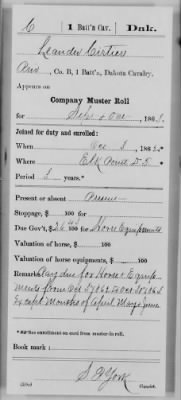 C | 1 Batt'n Cav. | Dak.
Leander Curtier
Priv, Co. B, 1 Batt'n, Dakota Cavalry.
Appears on
Company Muster Roll
for Sept & Oct, 1863.
Joined for duty and enrolled:
When Oct 5, 1862.*
Where Elk Point D.T.
Period 3 years.*
Present or absent Present
Stoppage, $ 100 for
Due Gov't, $ 100 for Horse Equipments
Valuation of horse, $ 100
Valuation of horse equipments, $ 100
Remarks: Pay due for Horse & Equip-
ments from Oct 5/62 to Oct 31/63
Except Months of April May & June
*See enrollment on card from muster-in roll.
Book mark:
S. A. York
Copyist.